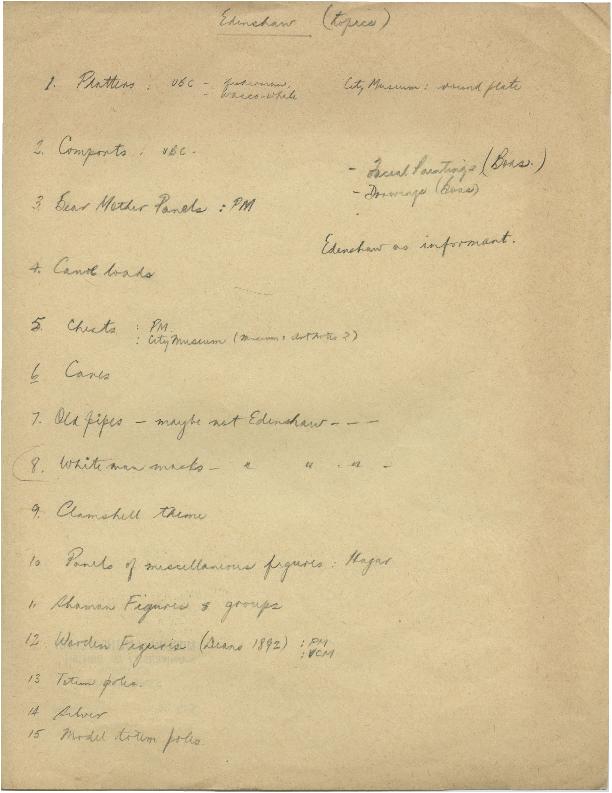 Edenshaw (topics)
1. Platters : UBC - fisherman. City Museum : round plate
- Wasco-White
2. Comports : UBC -
- Facial Paintings (Boas.)
- Drawings (Boas)
3. Bear Mother Panels : PM
Edenshaw as informant.
4. Canoe loads
5. Chests : PM.
: City Museum (museum :
6. Canes
7. Old pipes - maybe not Edenshaw - - -
8. White man masks - " " . " -
9. Clamshell theme
10 Panels of miscellaneous figures : Hagar
11 Shaman Figures & groups
12 Wooden Figures (Deans 1892) : PM
: VCM
13 Totem poles.
14 Silver
15 Model totem poles